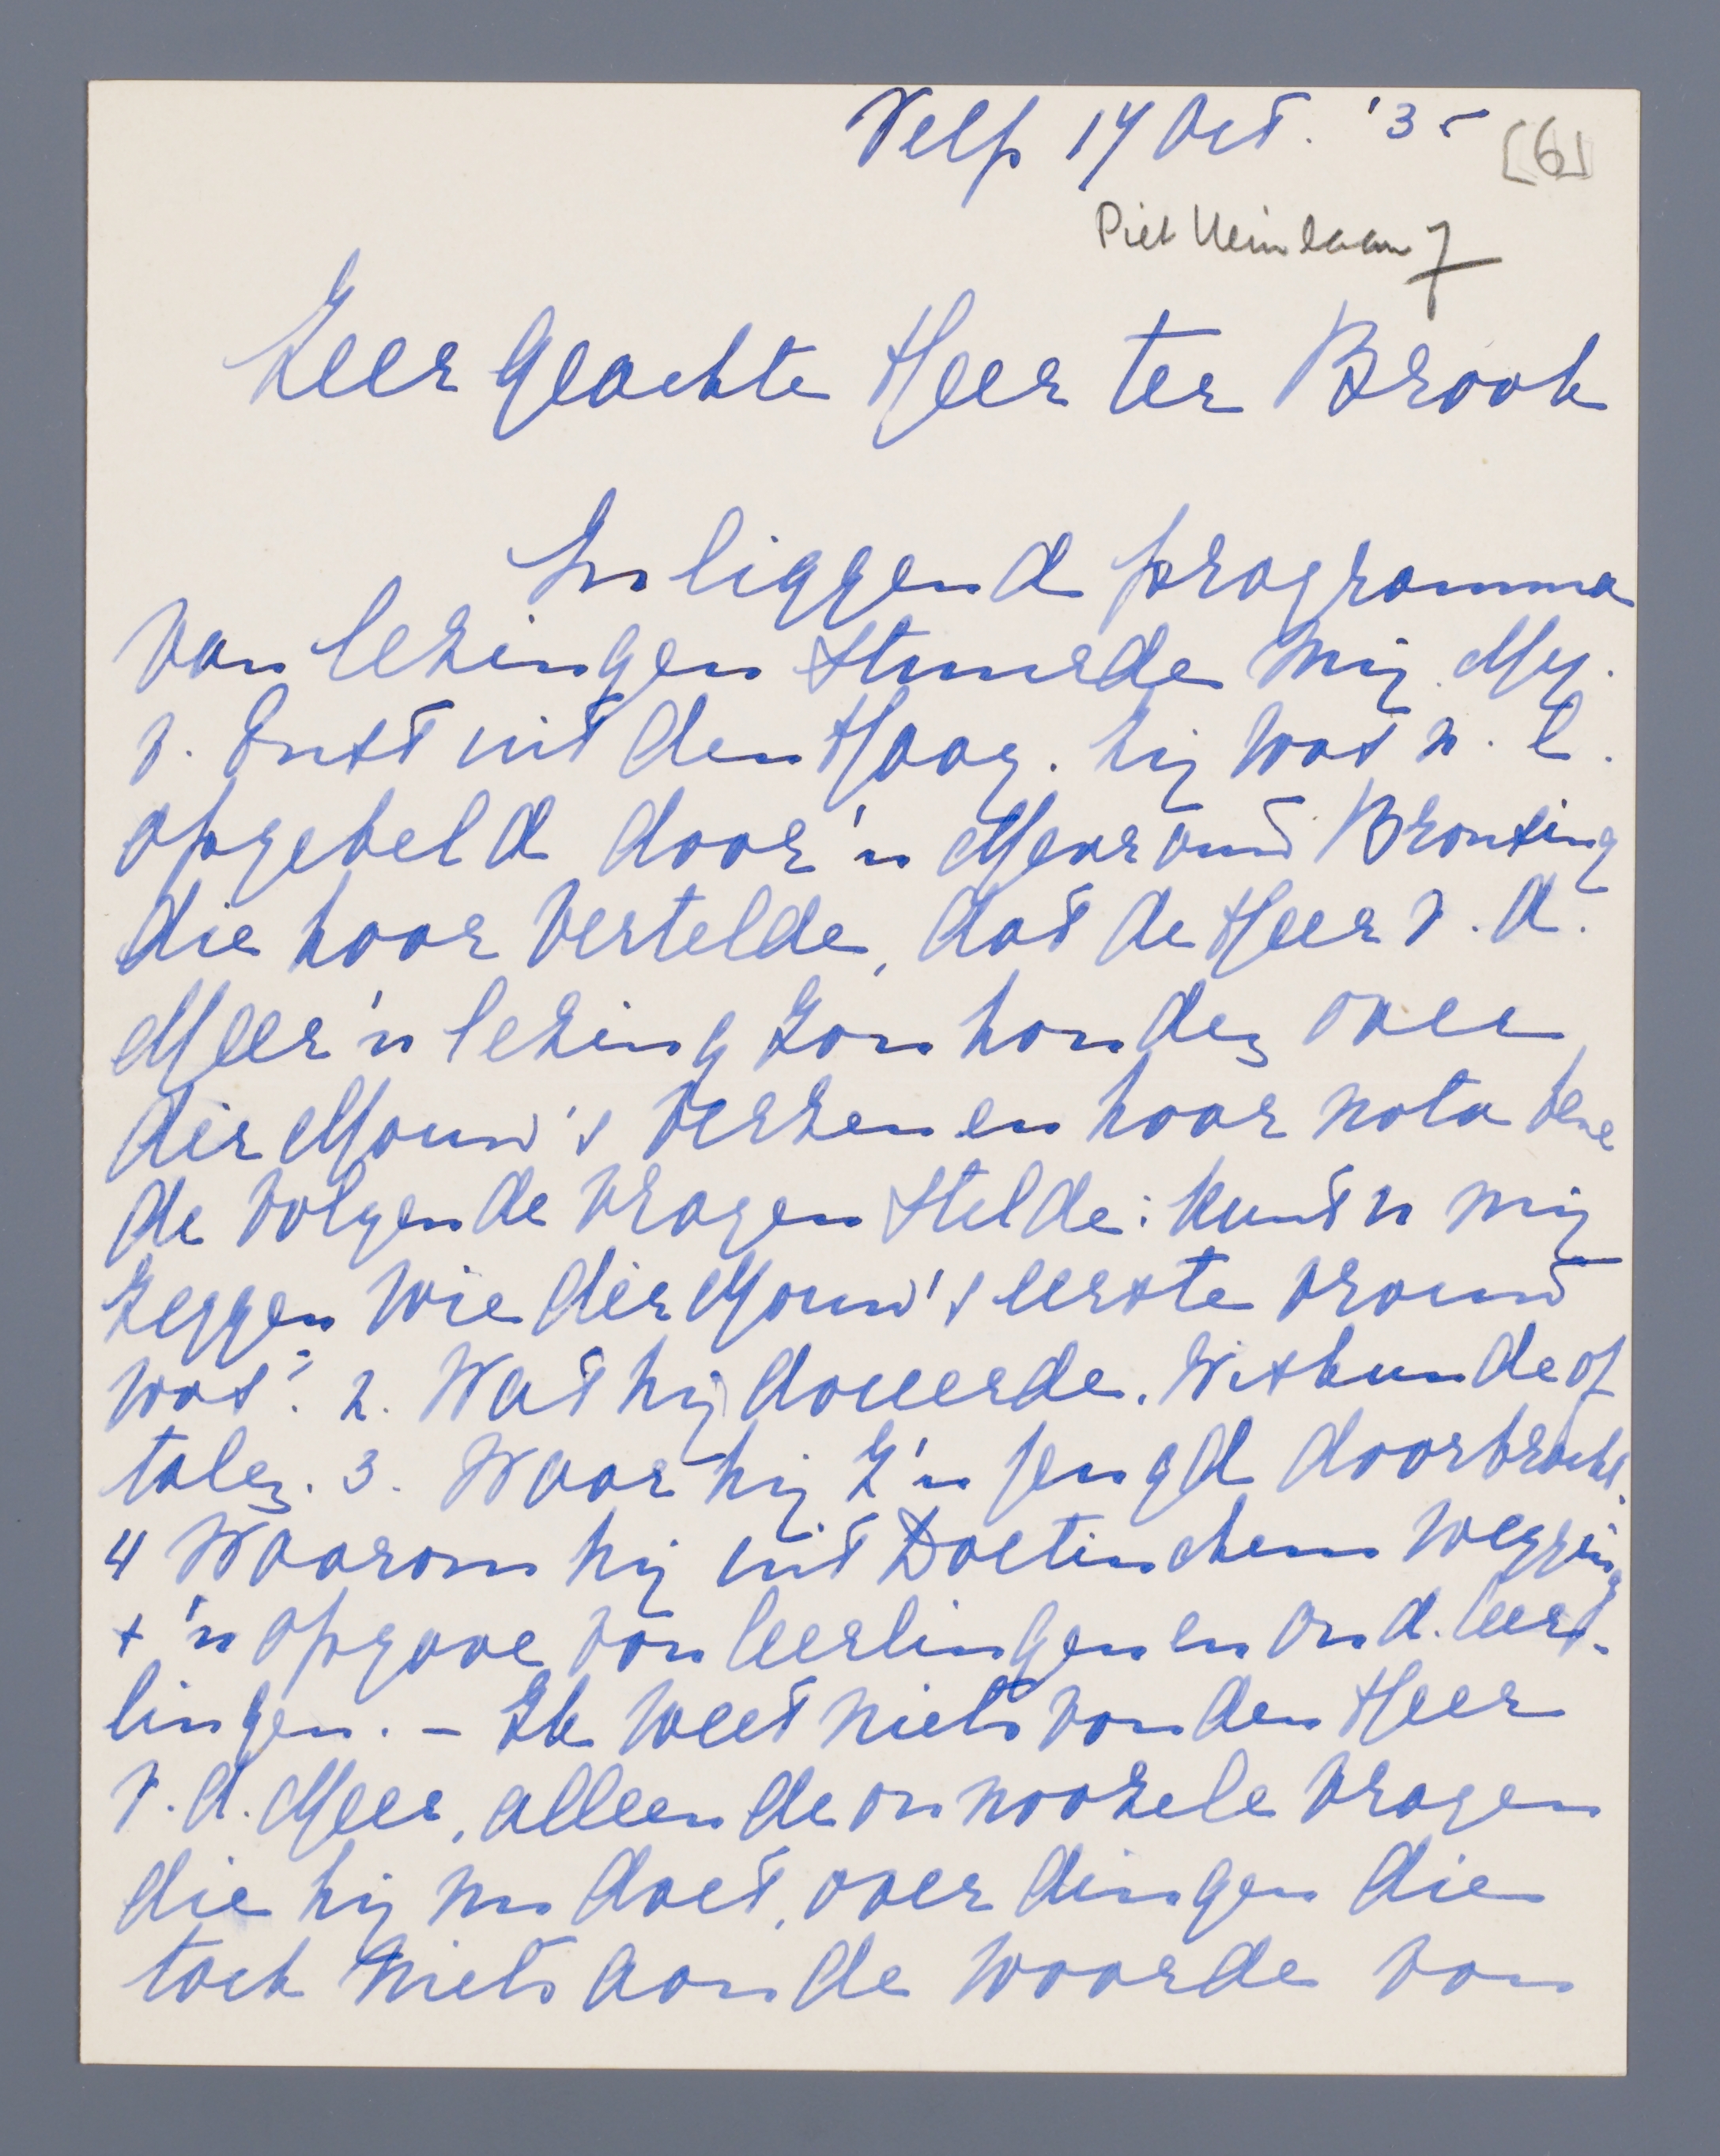 Velp 14 Oct. '35 [6]
Piet Heinlaan 7
Zeer Geachte Heer ter Braak
Inliggend programma
van lezingen stuurde mij Mej.
v. Ernst uit den Haag. Zij was n.l.
opgebeld door 'n Mevrouw Bronsing
die haar vertelde, dat de Heer v. d.
Meer 'n lezing zou houden over
dèr Mouw's verzen en haar nota bene
de volgende vragen stelde: Kunt u mij
zeggen wie dèr Mouw's eerste vrouw
was? 2. Wat hij doceerde. Wiskunde of
talen. 3. Waar hij z'n jeugd doorbracht.
4 Waarom hij uit Doetinchem wegging
+ 'n opgave van leerlingen en oud. leer-
lingen. – Ik weet niets van den Heer
v. d. Meer, alleen de onnoozele vragen
die hij nu doet, over dingen die
toch niets aan de waarde van